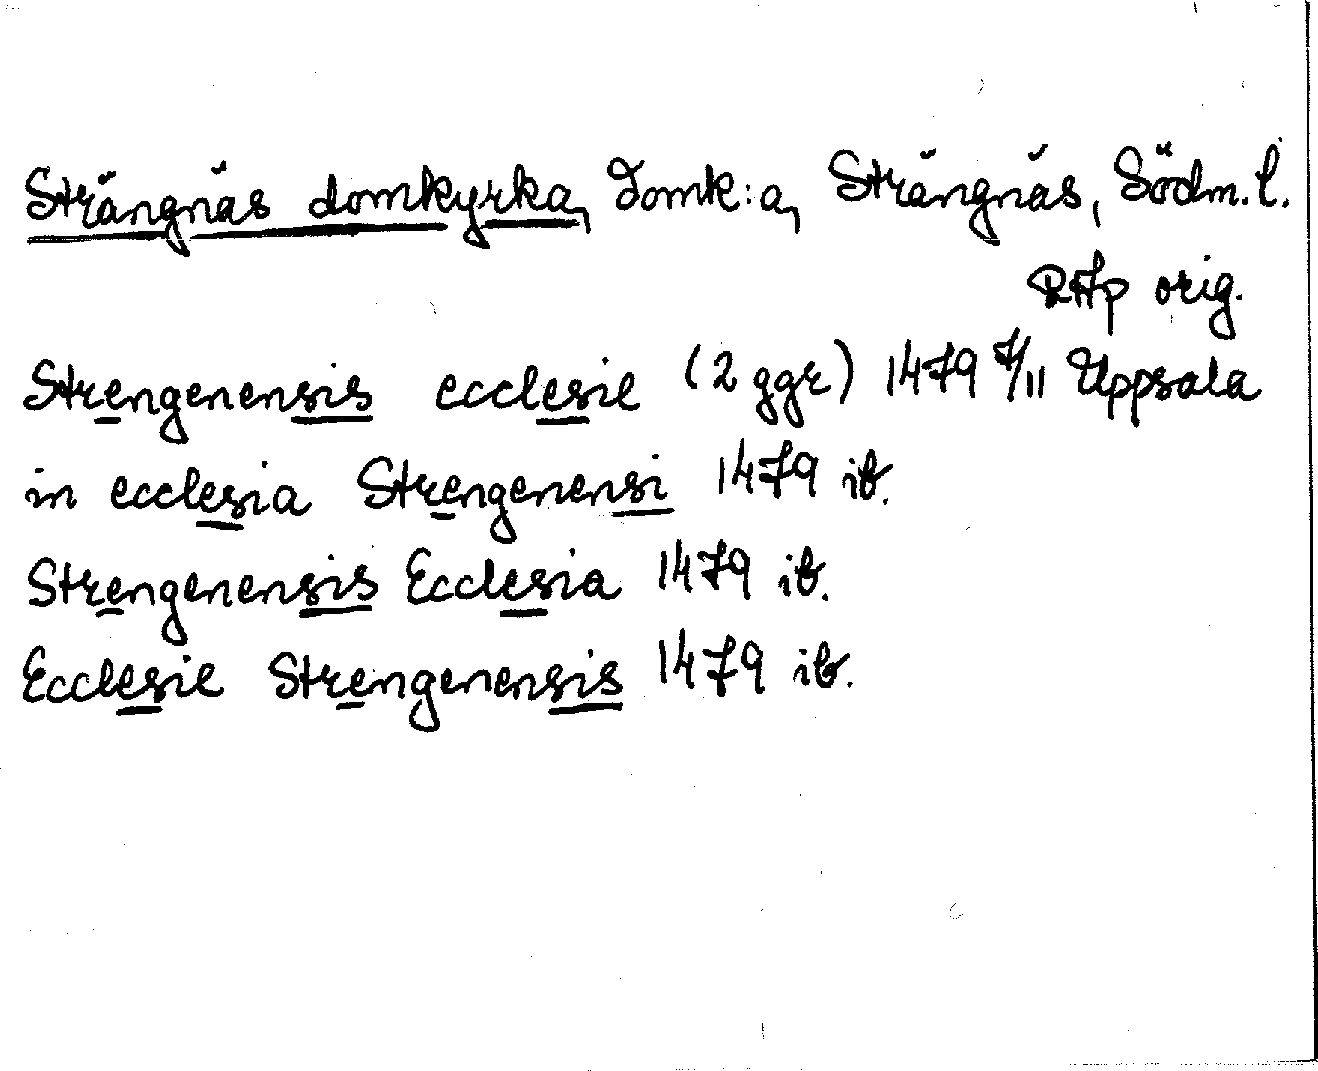 Strängnäs domkyrka, Domk:a, Strängnäs, Södm. l.
RAp orig.
Strengenensis ecclesie (2 ggr) 1479 7/11 Uppsala
in ecclesia Strengenensi 1479 ib.
Strengenensis Ecclesia 1479 ib.
Ecclesie Strengenensis 1479 ib.